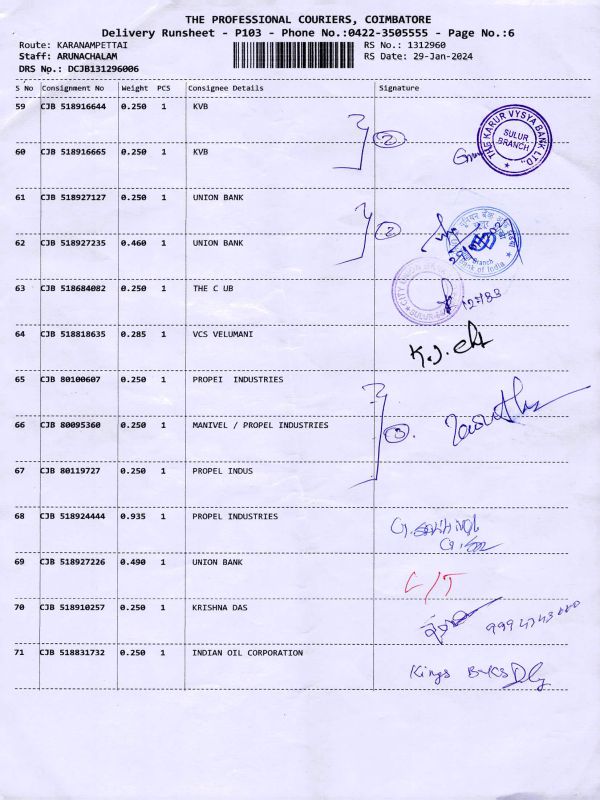 THE PROFESSIONAL COURIERS, COIMBATORE
Delivery Runsheet - P103 - Phone No.:0422-3505555 - Page No.:6
Route: KARANAMPETTAI RS No.: 1312960
Staff: ARUNACHALAM RS Date: 29-Jan-2024
DRS Np.: DCJB131296006
S No Consignment No Weight PCS Consignee Details Signature
59 CJB 518916644 0.250 1 KVB
THE KARUR VYSYA BANK LTD.,
SULUR
BRANCH
2
60 CJB 518916665 0.250 1 KVB
61 CJB 518927127 0.250 1 UNION BANK
2
62 CJB 518927235 0.460 1 UNION BANK
Branch
Bank of India
63 CJB 518684082 0.250 1 THE C UB
64 CJB 518818635 0.285 1 VCS VELUMANI
65 CJB 80100607 0.250 1 PROPEI INDUSTRIES
66 CJB 80095360 0.250 1 MANIVEL / PROPEL INDUSTRIES
3
67 CJB 80119727 0.250 1 PROPEL INDUS
68 CJB 518924444 0.935 1 PROPEL INDUSTRIES
69 CJB 518927226 0.490 1 UNION BANK
70 CJB 518910257 0.250 1 KRISHNA DAS
71 CJB 518831732 0.250 1 INDIAN OIL CORPORATION
Kings